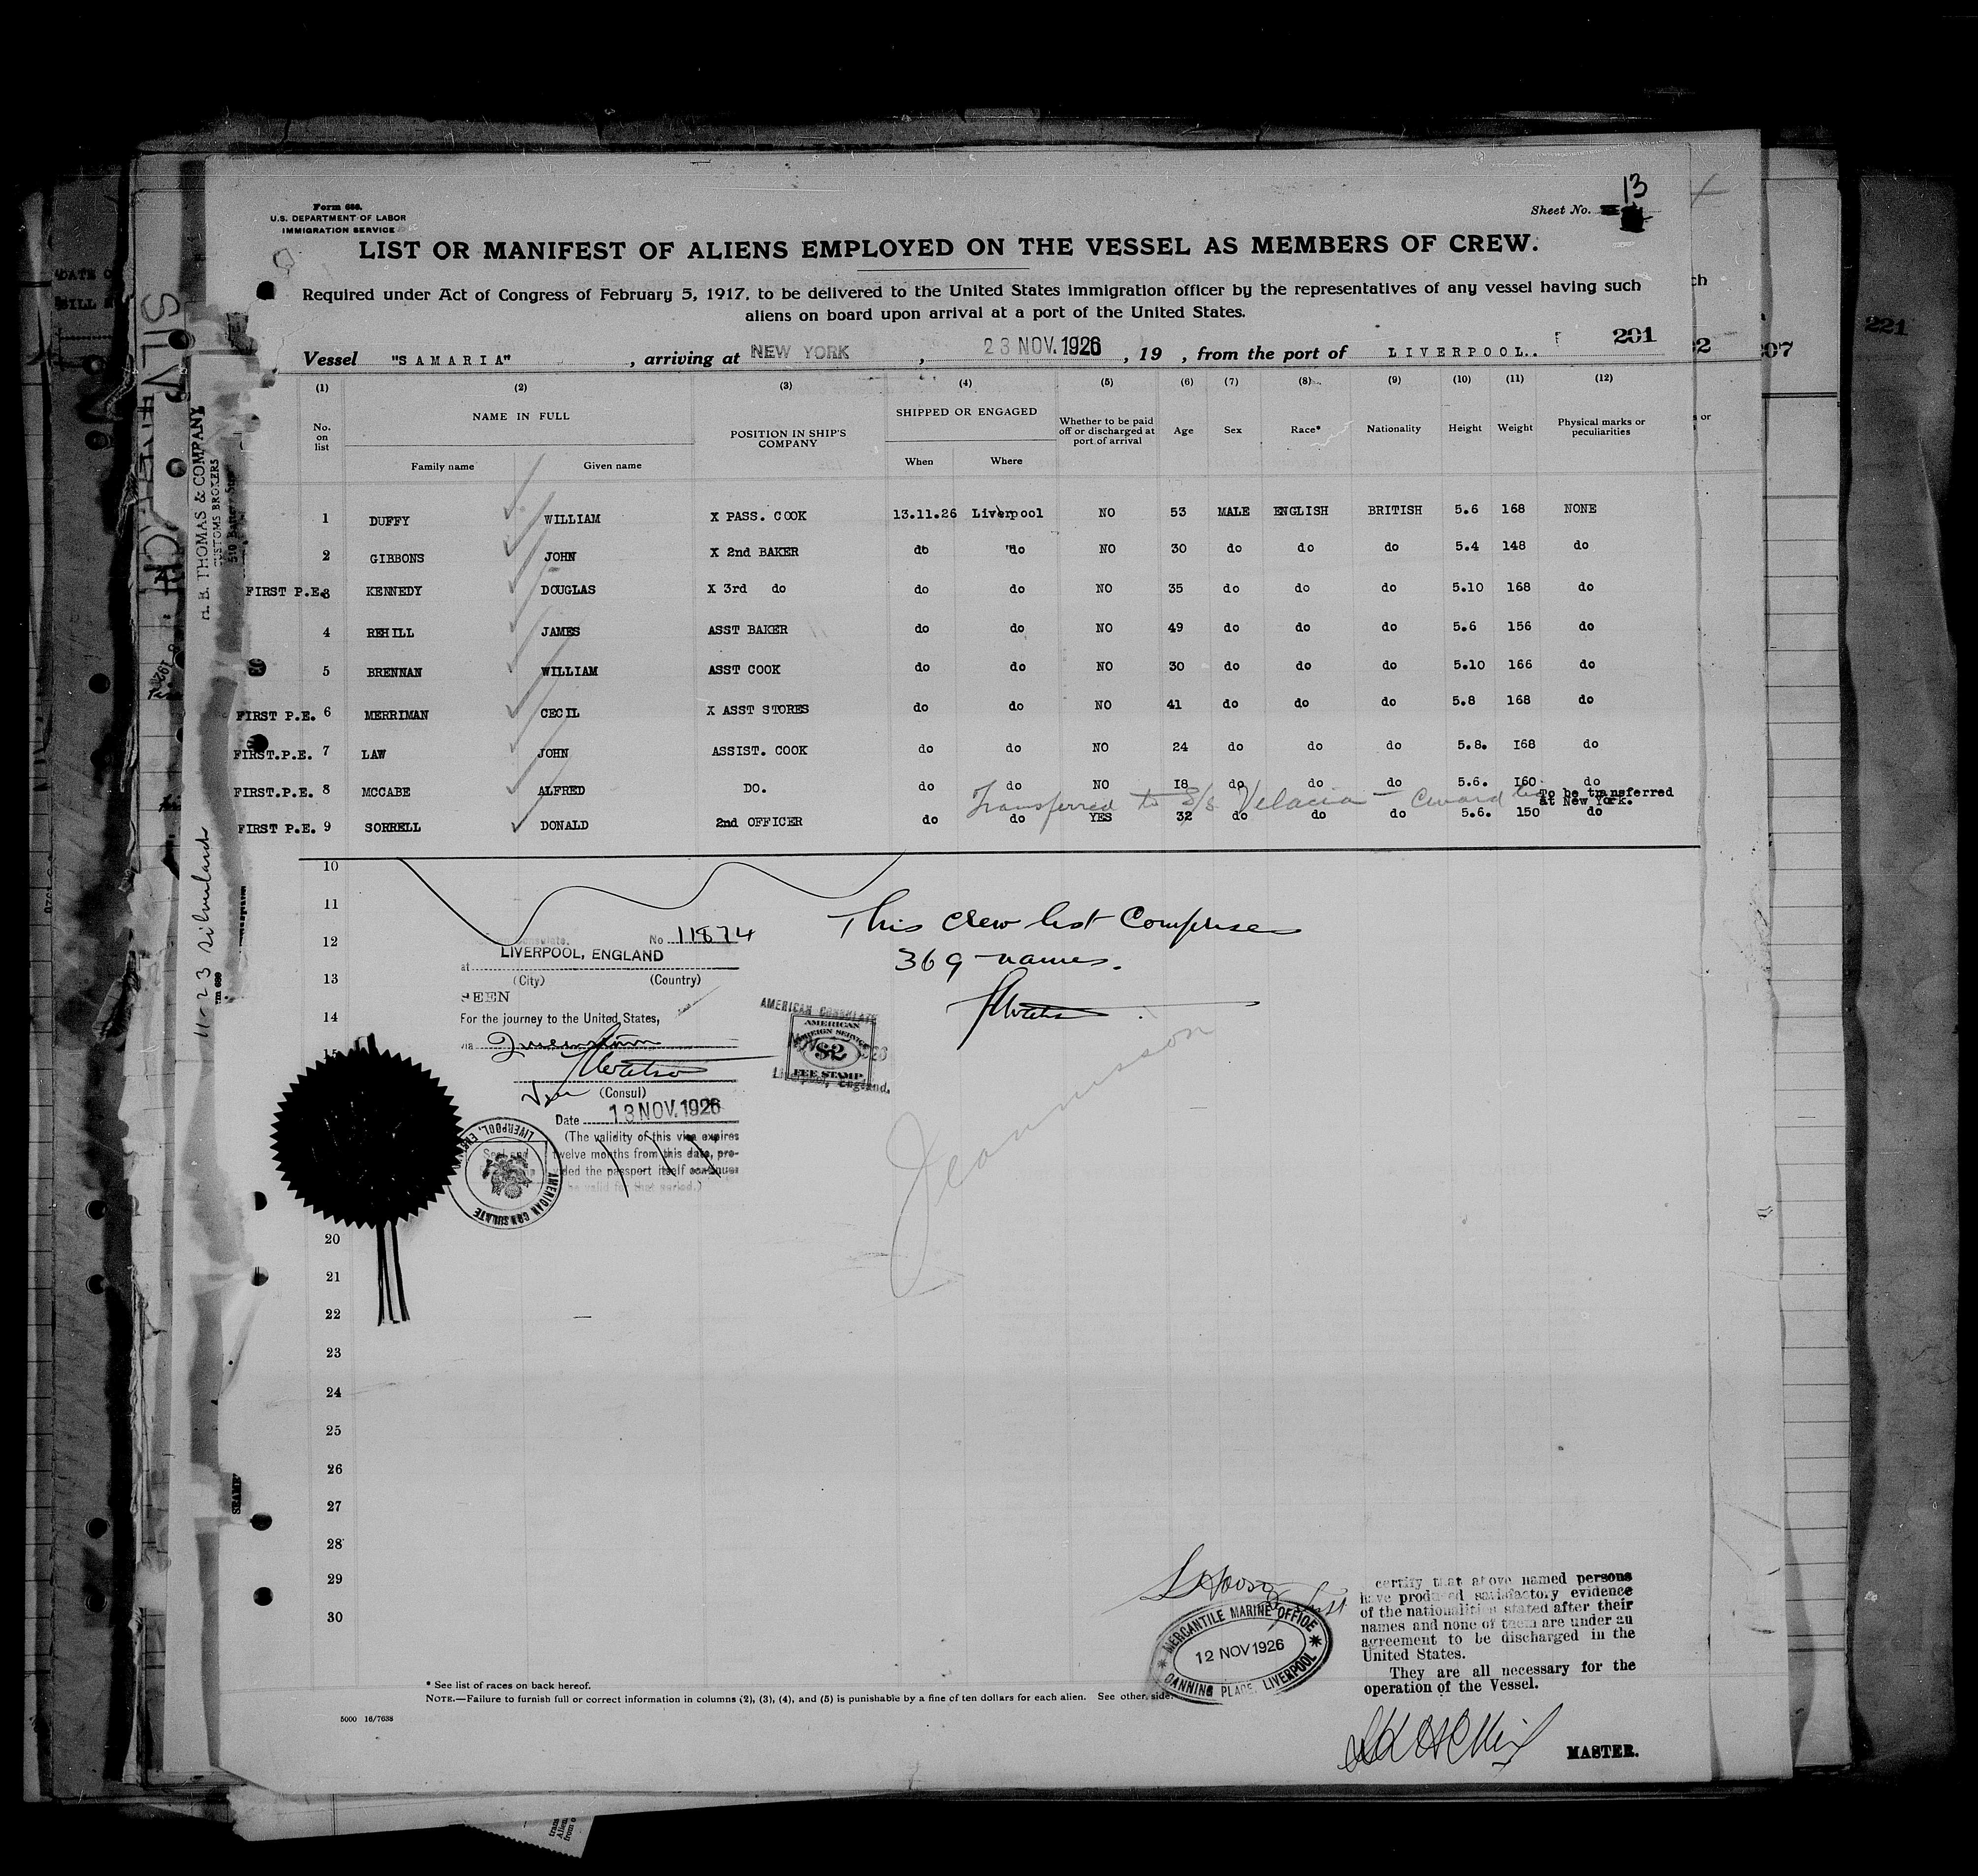 Form 686.
U.S. DEPARTMENT OF LABOR
IMMIGRATION SERVICE
Sheet No. 13
LIST OR MANIFEST OF ALIENS EMPLOYED ON THE VESSEL AS MEMBERS OF CREW.
Required under Act of Congress of February 5, 1917, to be delivered to the United States immigration officer by the representatives of any vessel having such
aliens on board upon arrival at a port of the United States.
201
Vessel "SAMARIA" , arriving at NEW YORK , 23 NOV. 1926 , 19 , from the port of LIVERPOOL..
(1) (2) (3) (4) (5) (6) (7) (8) (9) (10) (11) (12)
No. on list NAME IN FULL POSITION IN SHIP'S COMPANY SHIPPED OR ENGAGED Whether to be paid off or discharged at port of arrival Age Sex Race* Nationality Height Weight Physical marks or peculiarities
Family name Given name When Where
1 DUFFY WILLIAM X PASS. COOK 13.11.26 Liverpool NO 53 MALE ENGLISH BRITISH 5.6 168 NONE
2 GIBBONS JOHN X 2nd BAKER do do NO 30 do do do 5.4 148 do
FIRST P.E. 3 KENNEDY DOUGLAS X 3rd do do do NO 35 do do do 5.10 168 do
4 REHILL JAMES ASST BAKER do do NO 49 do do do 5.6 156 do
5 BRENNAN WILLIAM ASST COOK do do NO 30 do do do 5.10 166 do
FIRST P.E. 6 MERRIMAN CECIL X ASST STORES do do NO 41 do do do 5.8 168 do
FIRST.P.E. 7 LAW JOHN ASSIST. COOK do do NO 24 do do do 5.8. I68 do
FIRST.P.E. 8 MCCABE ALFRED DO. do do NO I8 do do do 5.6. I60 do
Transferred to S/S
To be transferred
at New York.
FIRST P.E. 9 SORRELL DONALD 2nd OFFICER do do YES 32 do do do 5.6. 150 do
10
11
This crew list Comprises
12
369 names.
No 11874
LIVERPOOL, ENGLAND
at
13
(City) (Country)
SEEN
14
For the journey to the United States,
via Queenstown
15
(Consul)
Date 13 NOV. 1926
(The validity of this visa expires
twelve months from this date, pro-
vided the passport itself continues
be valid for that period.)
AMERICAN CONSULATE
AMERICAN
FOREIGN SERVICE
$2
FEE STAMP
Liverpool, England.
AMERICAN CONSULATE
LIVERPOOL, ENGLAND
20
21
22
23
24
25
26
27
28
29
30
MERCANTILE MARINE OFFICE
12 NOV 1926
CANNING PLACE, LIVERPOOL
certify that above named persons
have produced satisfactory evidence
of the nationalities stated after their
names and none of them are under an
agreement to be discharged in the
United States.
They are all necessary for the
operation of the Vessel.
MASTER.
* See list of races on back hereof.
NOTE.—Failure to furnish full or correct information in columns (2), (3), (4), and (5) is punishable by a fine of ten dollars for each alien. See other side.
5000 16/7638
H. B. THOMAS & COMPANY
CUSTOMS BROKERS
221
207